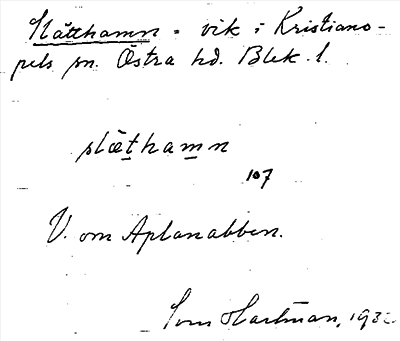 Slätthamn = vik i Kristiano-
pels sn. Östra hd. Blek. l.
slæthamn
107
V. om Aplanabben.
Hartman, 193